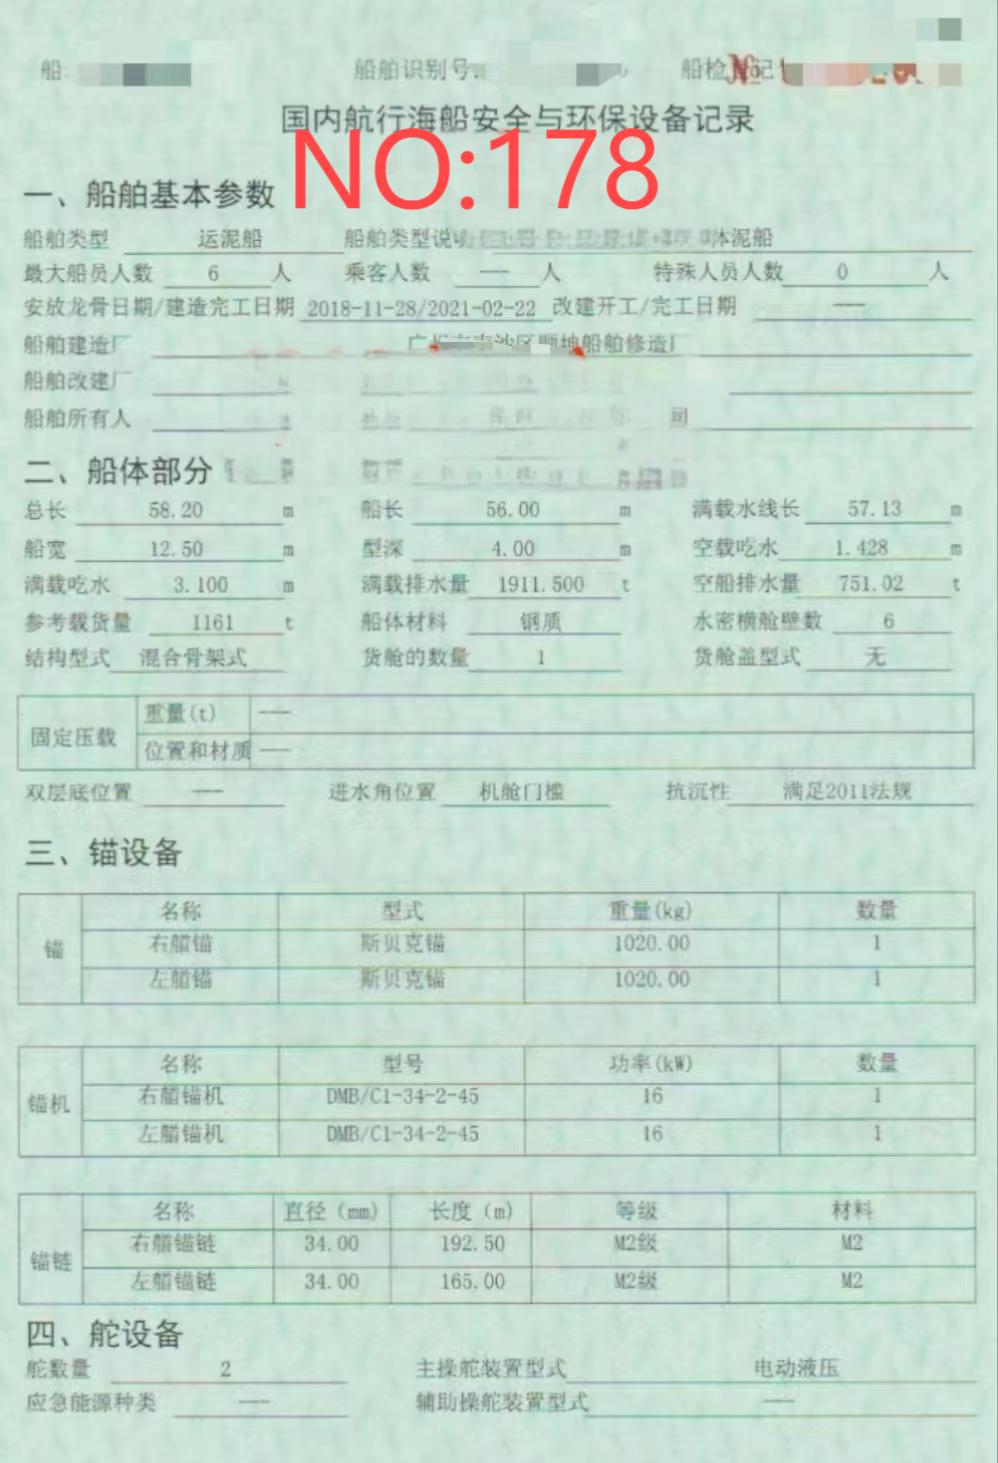 船
船舶识别号
船检 记
№
国内航行海船安全与环保设备记录
NO:178
一、船舶基本参数
船舶类型 运泥船 船舶类型说 体泥船
最大船员人数 6 人 乘客人数 —— 人 特殊人员人数 0 人
安放龙骨日期/建造完工日期 2018-11-28/2021-02-22 改建开工/完工日期 ——
船舶建造厂 船舶修造厂
船舶改建厂
船舶所有人 司
二、船体部分
总长 58.20 m 船长 56.00 m 满载水线长 57.13 m
船宽 12.50 m 型深 4.00 m 空载吃水 1.428 m
满载吃水 3.100 m 满载排水量 1911.500 t 空船排水量 751.02 t
参考载货量 1161 t 船体材料 钢质 水密横舱壁数 6
结构型式 混合骨架式 货舱的数量 1 货舱盖型式 无
固定压载 重量(t) ——
位置和材质 ——
双层底位置 —— 进水角位置 机舱门槛 抗沉性 满足2011法规
三、锚设备
锚 名称 型式 重量(kg) 数量
右艏锚 斯贝克锚 1020.00 1
左艏锚 斯贝克锚 1020.00 1
锚机 名称 型号 功率(kW) 数量
右艏锚机 DMB/C1-34-2-45 16 1
左艏锚机 DMB/C1-34-2-45 16 1
锚链 名称 直径 (mm) 长度 (m) 等级 材料
右艏锚链 34.00 192.50 M2级 M2
左艏锚链 34.00 165.00 M2级 M2
四、舵设备
舵数量 2 主操舵装置型式 电动液压
应急能源种类 —— 辅助操舵装置型式 ——